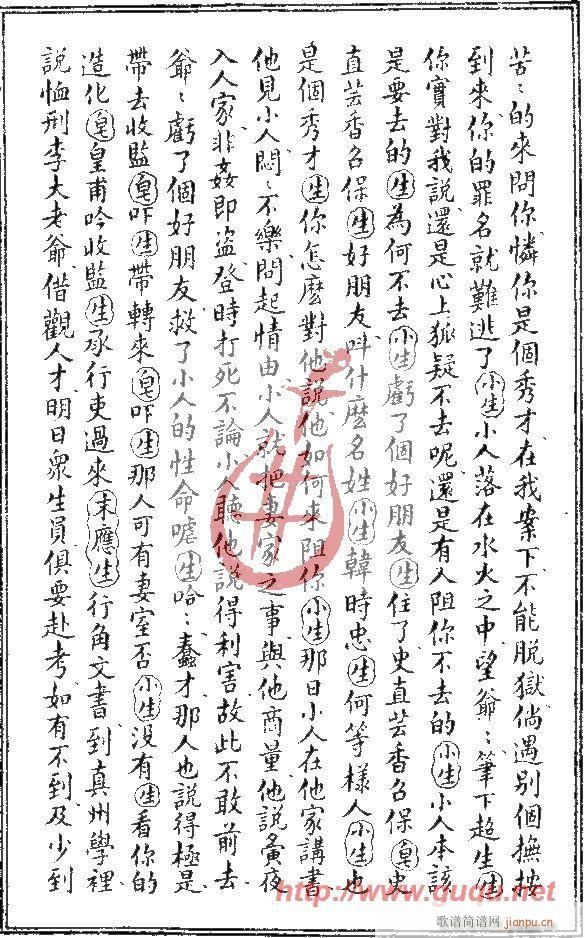 苦〻的來問你憐你是個秀才在我案下不能脱獄倘遇别個撫按
到來你的罪名就難逃了小生小人落在水火之中望爺〻筆下超生生
你實對我說還是心上狐疑不去呢還是有人阻你不去的小生小人本該
是要去的生為何不去小生虧了個好朋友生住了史直芸香名保皂史
直芸香名保生好朋友叫什麽名姓小生韓時忠生何等樣人小生也
是個秀才生你怎麽對他說他如何來阻你小生那日小人在他家講書
他見小人悶〻不樂問起情由小人就把妻家之事與他商量他說夤夜
入人家非姦即盜登時打死不論小人聽他說得利害故此不敢前去
爺〻虧了個好朋友救了小人的性命噓生哈〻蠢才那人也說得極是
帶去收監皂吓生帶轉來皂吓生那人可有妻室否小生没有生看你的
造化皂皇甫吟收監生承行吏過來末應生行角文書到真州學裡
說恤刑李大老爺借觀人才明日衆生員俱要赴考如有不到及少到
http://www.guqu.net
歌谱简谱网
jianpu.cn